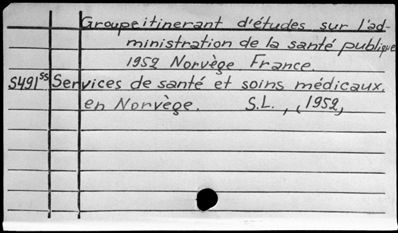 Groupe itinerant d'études sur l'ad-
ministration de la santé publique
1952 Norvège France.
S491ss Services de santé et soins médicaux
en Norvège. S.L., (1952)